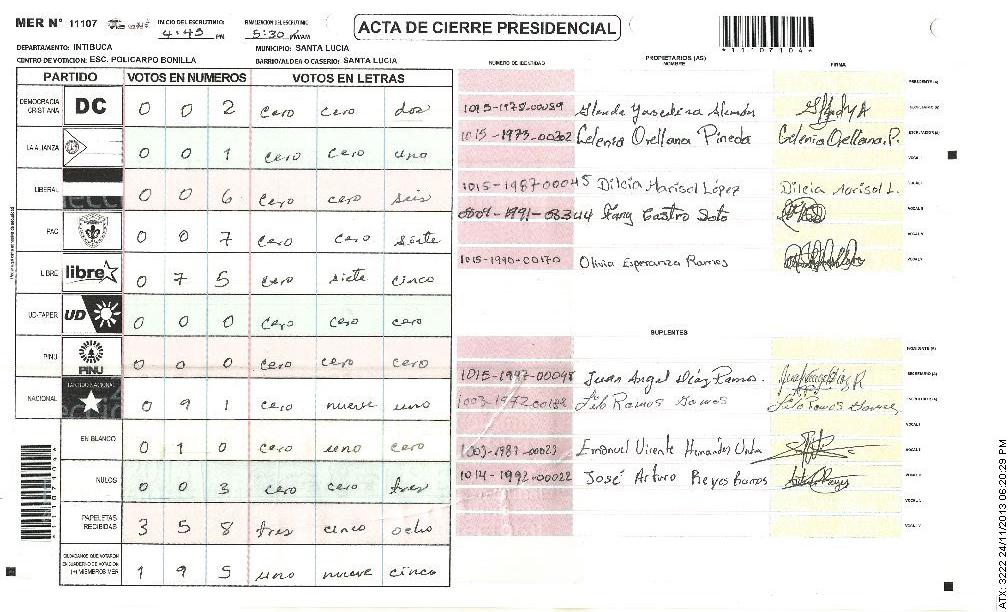 MER N° 11107 INICIO DEL ESCRUTINIO: 4:45 PM FINALIZACION DEL ESCRUTINIO 5:30 PM/AM
ACTA DE CIERRE PRESIDENCIAL
*1110704*
DEPARTAMENTO: INTIBUCA MUNICIPIO: SANTA LUCIA
CENTRO DE VOTACION: ESC. POLICARPO BONILLA BARRIO/ALDEA O CASERIO: SANTA LUCIA
PARTIDO VOTOS EN NUMEROS VOTOS EN LETRAS
DEMOCRACIA CRISTIANA DC 0 0 2 cero cero dos
LA ALIANZA 0 0 1 cero cero uno
LIBERAL 0 0 6 cero cero seis
PAC 0 0 7 cero cero siete
LIBRE libre 0 7 5 cero siete cinco
UD-FAPER UD 0 0 0 cero cero cero
PINU PINU 0 0 0 cero cero cero
NACIONAL PARTIDO NACIONAL 0 9 1 cero nueve uno
EN BLANCO 0 1 0 cero uno cero
NULOS 0 0 3 cero cero tres
PAPELETAS RECIBIDAS 3 5 8 tres cinco ocho
CIUDADANOS QUE VOTARON EN CUADERNO DE VOTACION (+) MIEMBROS MER 1 9 5 uno nueve cinco
NUMERO DE IDENTIDAD PROPIETARIOS (AS) NOMBRE FIRMA
PRESIDENTE (A)
1015-1978-00089 Glenda Yaseldina Alemán SECRETARIO (A)
1015-1973-00202 Celenia Orellana Pineda Celenia Orellana.P. ESCRUTADOR (A)
VOCAL I
1015-1987-00045 Dilcia Marisol López Dilcia Marisol L.
Fany Castro Soto VOCAL III
1015-1990-00170 Olivia Esperanza Ramos
SUPLENTES
PRESIDENTE (A)
1015-1997-00098 Juan Angel Díaz Ramos. SECRETARIO (A)
1003-1972-00188 Lilo Ramos Gomes Lilo Ramos Gomes
VOCAL I
1003-1987-00023 Emanuel Vicente Hernández
1014-1992-00022 José Arturo Reyes Ramos
ATX: 3222 24/11/2013 06:20:29 PM